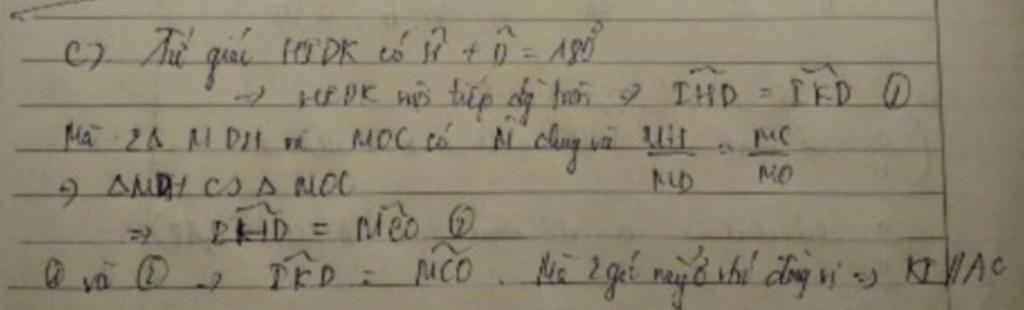 c) Tứ giác HIDK có Ĥ + D̂ = 180°
=> HIDK nội tiếp đg tròn => IHD = IKD ①
Mà 2Δ MDH và MOC có M̂ chung và MH/MD = MC/MO
=> ΔMDH ∽ Δ MOC
=> IHD = MCO ②
① và ② => IKD = MCO. Mà 2 góc này ở vị trí đồng vị => KI // AC